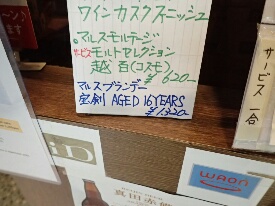 ワインカスクフィニッシュ
マルスモルテージ
モルトセレクション
越百(コスモ)
¥620-
マルスブランデー
宝剣 AGED 16YEARS
¥1320-
サービス一合
iD
WAON
真田赤備